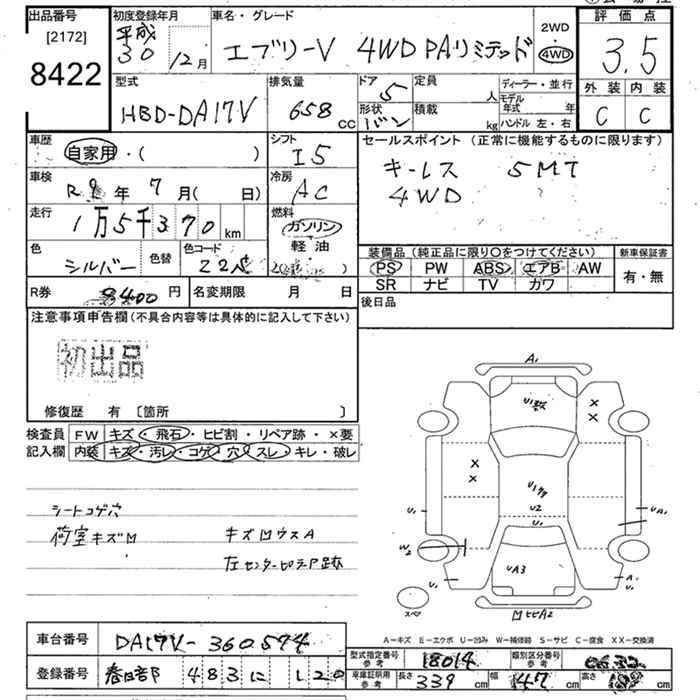 出品番号
[2172]
8422
初度登録年月
平成
30 12月
車名・グレード
エブリーV 4WD PAリミテッド
2WD
・
4WD
評価点
3.5
外装 内装
C C
型式
HBD-DA17V
排気量
658 cc
ドア
5
形状
バン
定員
人
積載
kg
ディーラー・並行
モデル
年式 年
ハンドル 左・右
車歴
自家用・( )
シフト
I5
セールスポイント (正常に機能するものに限ります)
キーレス 5MT
4WD
車検
年 7月( 日)
冷房
AC
走行
1万5千370km
燃料
ガソリン
軽油
色
シルバー
色替
色コード
装備品 (純正品に限り○をつけてください)
PS PW ABS エアB AW
SR ナビ TV カワ
新車保証書
有・無
R券
8400円
名変期限 月 日
後日品
注意事項申告欄(不具合内容等は具体的に記入して下さい)
初出品
修復歴 有 〔箇所 〕
検査員
記入欄
FW キズ・飛石・ヒビ割・リペア跡・×要
内装 キズ・汚レ・コゲ・穴・スレ・キレ・破レ
シートコゲ穴
荷室キズM キズMウスA
左センターピラー
A1
U2
U1
UA3
U1
W2
U1
UA1
A1
U1
スペア
A-キズ E-エクボ U-凹み W-補修跡 S-サビ C-腐食 XX-交換済
車台番号
DA17V-360574
登録番号
春日部 483
型式指定番号
参考
18014
類別区分番号
参考
車庫証明用
参考
長さ
339cm
幅
147cm
高さ
cm